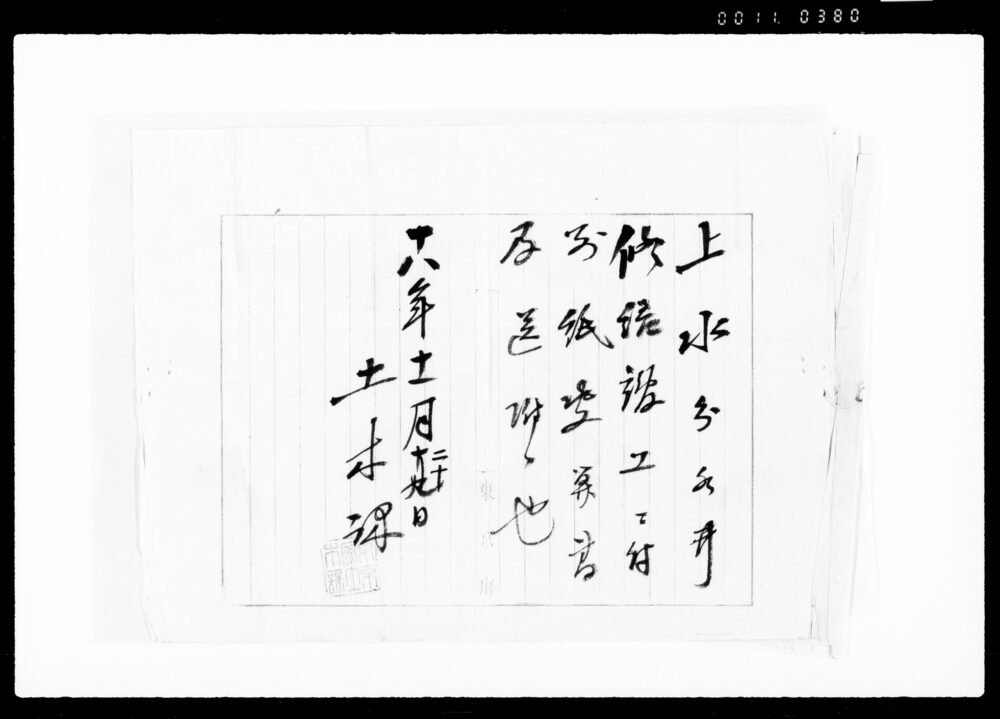 0011. 0380
上水分水井
修繕竣工ニ付
別紙受算書
及送附候也
十八年十一月二十九日
土木課
東京府